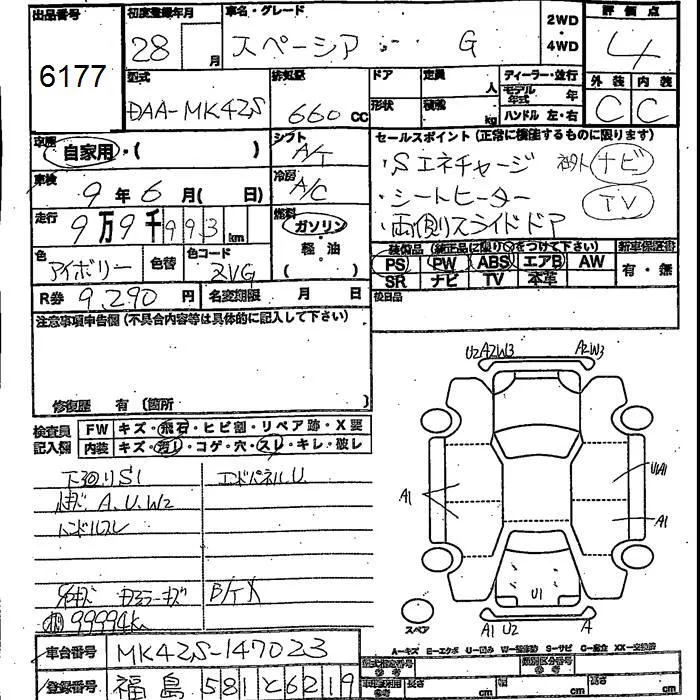 出品番号 初度登録年月 車名・グレード 2WD・4WD 評価点
6177 28 月 スペーシア G 4
型式 排気量 ドア 定員 人 ディーラー・並行 外装 内装
DAA-MK42S 660 CC 形状 積載 kg モデル年式 年 ハンドル 左・右 C C
車歴 自家用・( ) シフト A/T セールスポイント(正常に機能するものに限ります)
車検 9年6月( 日) 冷房 A/C ・Sエネチャージ 社外ナビ
・シートヒーター TV
走行 9万9千993km 燃料 ガソリン ・両側スライドドア
軽油 ( )
色 アイボリー 色替 色コード ZVG 装備品(純正品に限り○をつけて下さい) 新車保証書
PS PW ABS エアB AW 有・無
SR ナビ TV 本革
R券 9,290円 名変期限 月 日 後日品
注意事項申告欄(不具合内容等は具体的に記入して下さい)
修復歴 有(箇所 )
U2A2W3 A2W3
検査員記入欄 FW キズ・飛石・ヒビ割・リペア跡・X要
内装 キズ・汚レ・コゲ・穴・スレ・キレ・破レ
下廻りS1 エンドパネルU
A、U、W2
ハンドルスレ
A1 U1A1
A1
U1
B/T X
99994k
スペア A1 U2 A
A-キズ E-エクボ U-凹み W-補修跡 S-サビ C-腐食 XX-交換済
車台番号 MK42S-147023
型式指定番号 類別区分番号
登録番号 福島581と6219
長さ cm 幅 cm 高さ cm